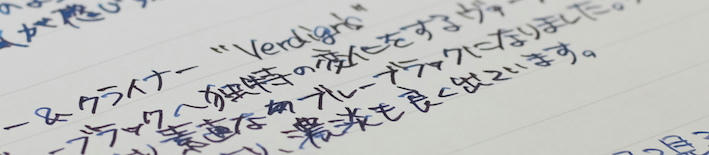 が
ー & クライナー "Verdigris"
ーブラックへ独特の変化をするヴァー
素直なブルーブラックになりました。
、濃淡も良く出ています。